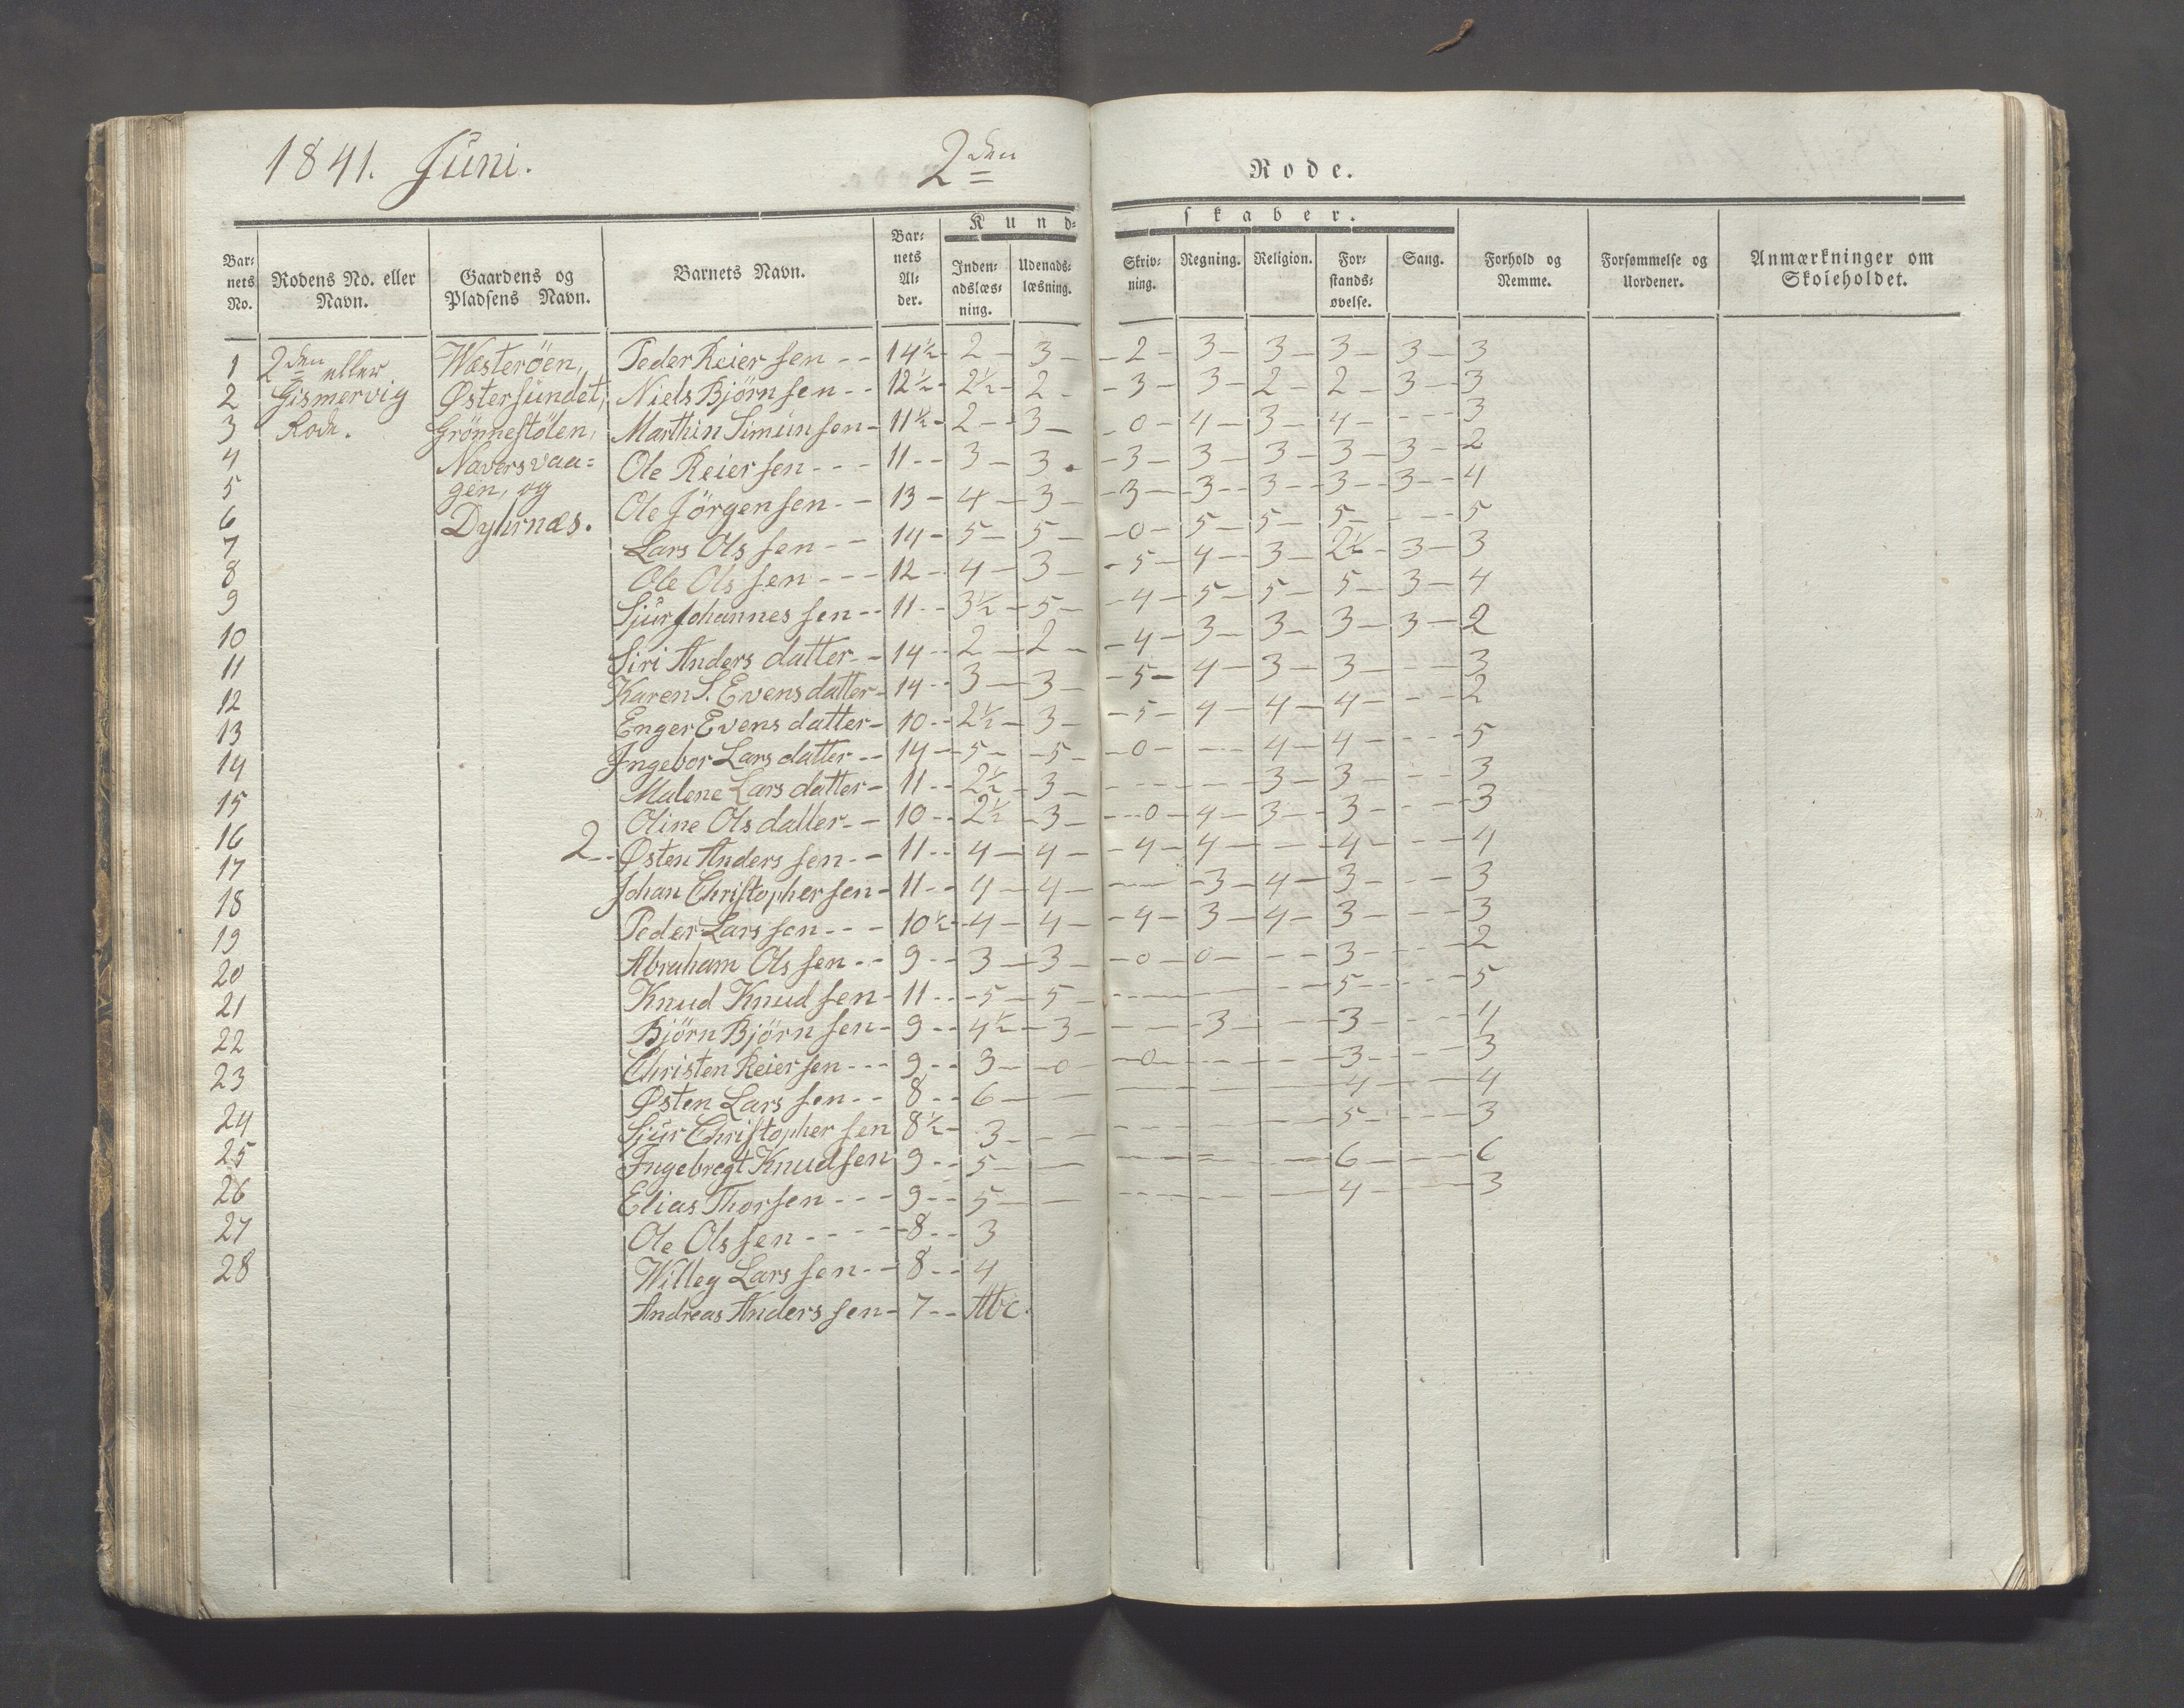 1841. Juni. 2den Rode.
Kundskaber.
Barnets No. Rodens No. eller Navn. Gaardens og Pladsens Navn. Barnets Navn. Barnets Alder. Indenadslæsning. Udenadslæsning. Skrivning. Regning. Religion. Forstandsøvelse. Sang. Forhold og Nemme. Forsømmelse og Uordener. Anmærkninger om Skoleholdet.
1 2den eller Wæsteröen, Peder Reiersen -- 14½ - 2 - 3 - - 2 - 3 - 3 - 3 - 3 - 3
2 Gismervig Østersundet, Niels Björnsen -- 12½ - 2½ - 2 - - 3 - 3 - 2 - 2 - 3 - 3
3 Rode. Grönnestölen, Marthin Simunsen - 11½ - 2 - 3 - - 0 - 4 - 3 - 4 - - - 3
4 Naversvaa= Ole Reiersen --- 11 -- 3 - 3 - 3 - 3 - 3 - 3 - 3 - 2
5 gen, og Ole Jörgensen -- 13 - 4 - 3 - - 3 - 3 - 3 - 3 - 3 - 4
6 Dyhrnæs. Lars Olssen -- 14 - 5 - 5 - - 0 - 5 - 5 - 5 - - - 5
7 Ole Olssen --- 12 - 4 - 3 - - 5 - 4 - 3 - 2½ - 3 - 3
8 Sjur Johannessen -- 11 -- 3½ - 5 - - 4 - 5 - 5 - 5 - 3 - 4
9 Siri Andersdatter -- 14 -- 2 - 2 - - 4 - 3 - 3 - 3 - 3 - 2
10 Karen S. Evensdatter - 14 -- 3 - 3 - - 5 - 4 - 3 - 3 - - - 3
11 Enger Evensdatter - 10 -- 2½ - 3 - - 5 - 4 - 4 - 4 - - - 2
12 Ingebor Larsdatter -- 14 - 5 - 5 - - 0 - - - 4 - 4 - - - 5
13 Malene Larsdatter - 11 -- 2½ - 3 - - - - - 3 - 3 - - - 3
14 Oline Olsdatter -- 10 -- 2½ - 3 - - 0 - 4 - 3 - 3 - - - 3
15 2-- Østen Anderssen -- 11 -- 4 - 4 - - 4 - 4 - - - 4 - - - 4
16 Johan Christophersen - 11 -- 4 - 4 - - - 3 - 4 - 3 - - - 3
17 Peder Larssen --- 10½ - 4 - 4 - - 4 - 3 - 4 - 3 - - - 3
18 Abraham Olssen -- 9 -- 3 - 3 - - 0 - 0 - - - 3 - - - 2
19 Knud Knudsen - 11 -- 5 - 5 - - - - - - 5 - - - 5
20 Björn Björnsen - 9 -- 4½ - 3 - - - 3 - - - 3 - - - 4
21 Christen Reiersen --- 9 -- 3 - 0 - 0 - - - - 3 - - - 3
22 Østen Larssen -- 8 -- 6 - - - - - - 4 - - - 4
23 Sjur Christophersen 8½ - 3 - - - - - - 5 - - - 3
24 Ingebregt Knudsen 9 -- 5 - - - - - - 6 - - - 6
25 Elias Thorsen --- 9 -- 5 - - - - - - 4 - - - 3
26 Ole Olssen ---- 8 -- 3
27 Willeg Larssen -- 8 -- 4
28 Andreas Anderssen - 7 -- Abc.